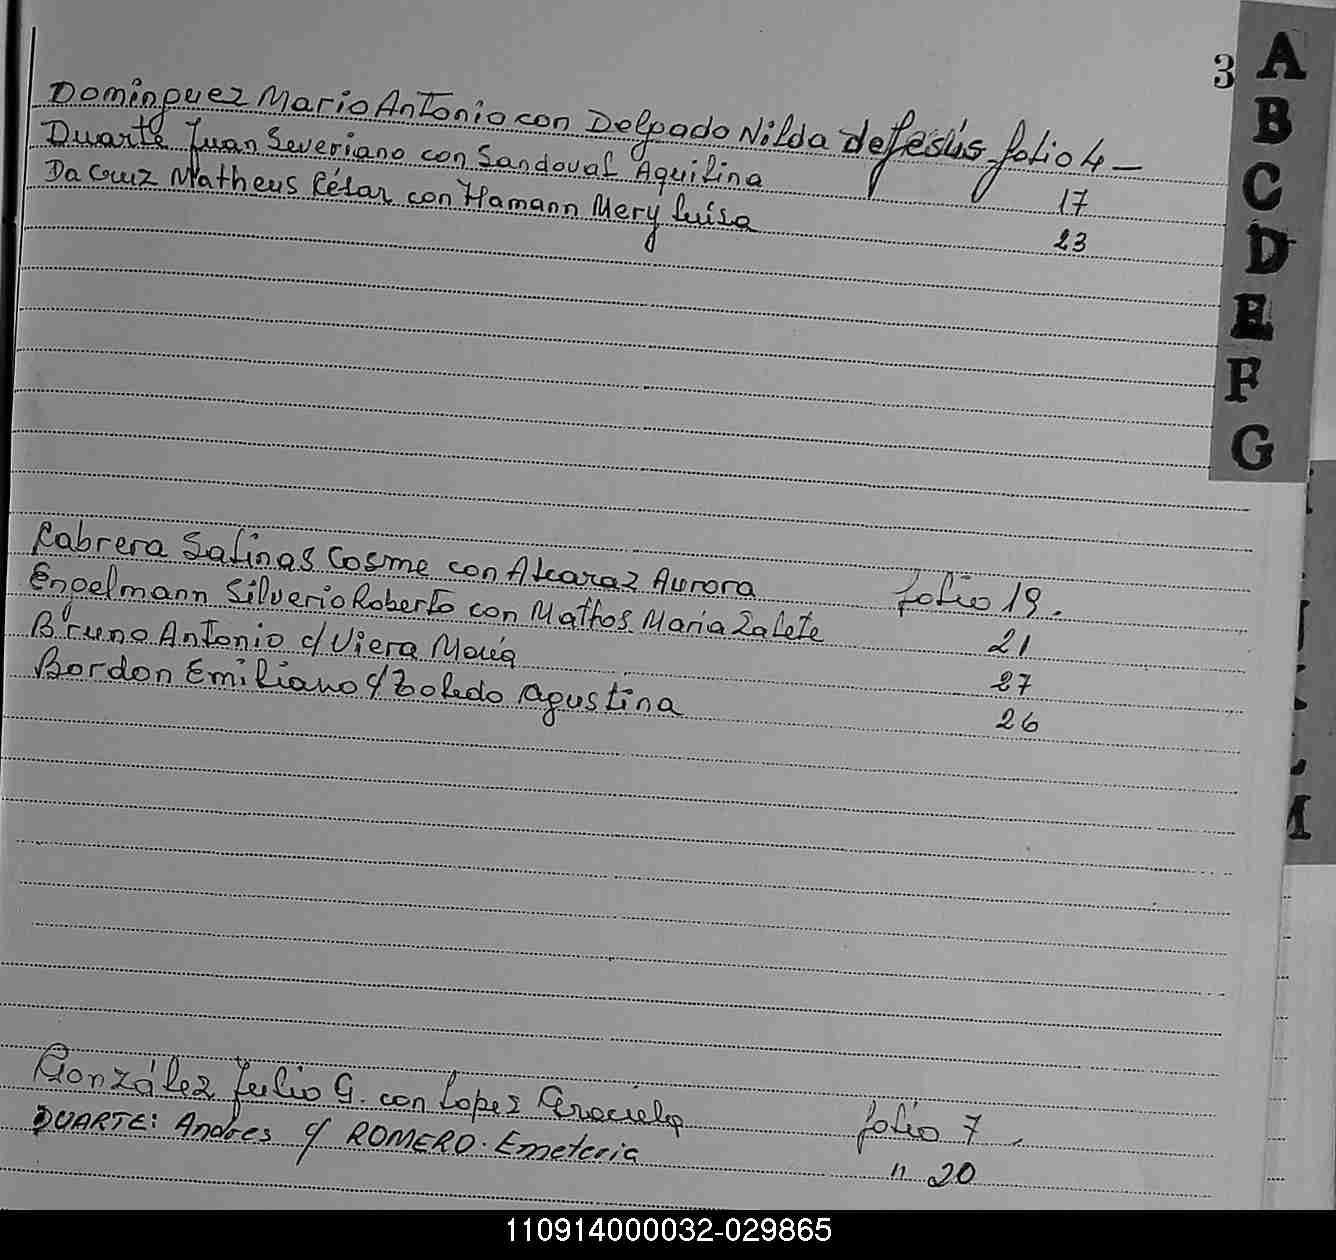 3
Dominguez Mario Antonio con Delgado Nilda de Jesús folio 4 -
Duarte Juan Severiano con Sandoval Aquilina 17
Da Cruz Matheus César con Hamann Mery Luisa 23
Cabrera Salinas Cosme con Alcaraz Aurora folio 19.
Engelmann Silverio Roberto con Mathos Maria Zalete 21
Bruno Antonio c/ Viera María 27
Bordon Emiliano c/ Toledo Agustina 26
González Julio G. con Lopez Graciela folio 7
DUARTE: Andres c/ ROMERO. Emeteria " 20
A
B
C
D
E
F
G
M
110914000032-029865